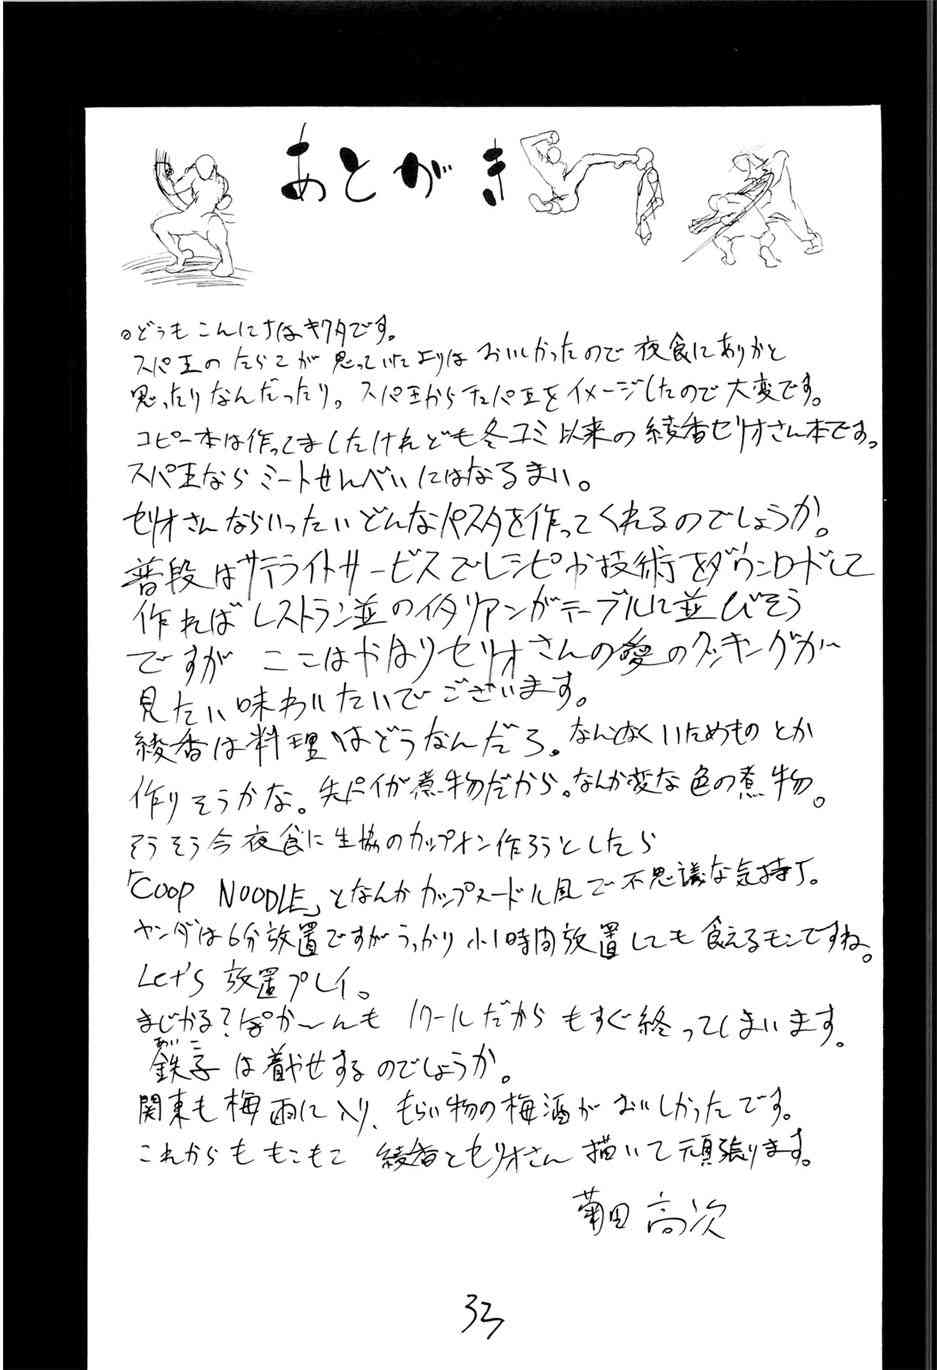 あとがき
○どうもこんにちはキクタです。
スパ王のたらこが思っていたよりはおいしかったので夜食にありかと
思ったりなんだったり。スパ王からたパ王をイメージしたので大変です。
コピー本は作ってましたけれども冬コミ以来の綾香セリオさん本です。
スパ王ならミートせんべいにはなるまい。
セリオさんならいったいどんなパスタを作ってくれるのでしょうか。
普段はサテライトサービスでレシピや技術をダウンロードして
作ればレストラン並のイタリアンがテーブルに並びそう
ですが ここはやはりセリオさんの愛のクッキングが
見たい味わいたいでございます。
綾香は料理はどうなんだろ。なんとなくいためものとか
作りそうかな。先パイが煮物だから。なんか変な色の煮物。
そうそう今夜食に生協のカップメン作ろうとしたら
「COOP NOODLE」となんかカップヌードル風で不思議な気持ち。
ヤンダは6分放置ですがうっかり小1時間放置しても食えるモンですね。
Let's 放置プレイ。
まじかる?ぽか〜んも 1クールだからもすぐ終ってしまいます。
あいこ
鉄子は着やせするのでしょうか。
関東も梅雨に入り、もらい物の梅酒がおいしかったです。
これからももこもこ 綾香とセリオさん描いて頑張ります。
菊田 高次
33